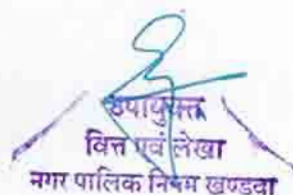 उपायुक्त
वित्त एवं लेखा
नगर पालिक निगम खण्डवा